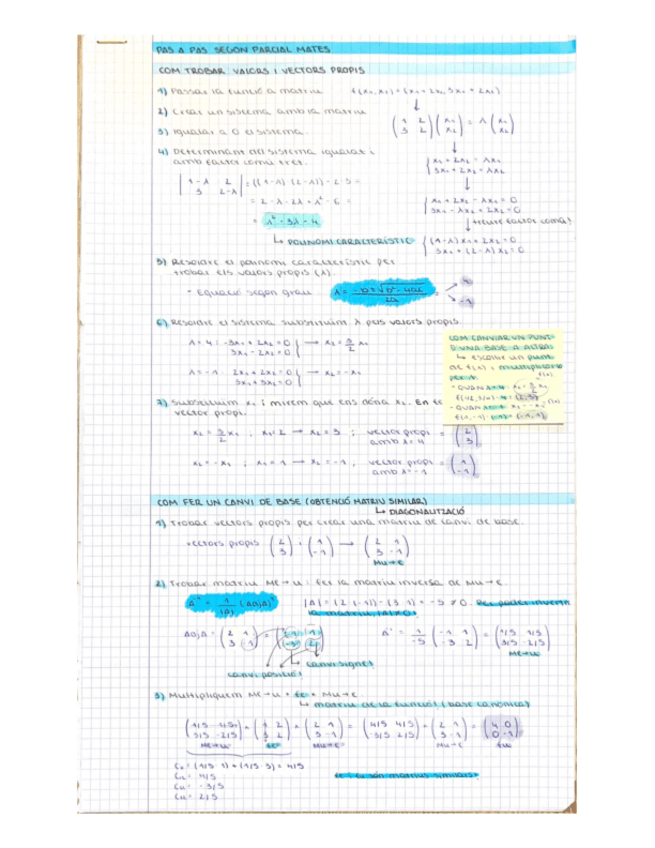 PAS A PAS SEGON PARCIAL MATES
COM TROBAR VALORS I VECTORS PROPIS
1) Passar la funció a matriu f(x₁,x₂)=(x₁+2x₂, 3x₁+2x₂)
2) Crear un sistema amb la matriu (1 2 / 3 2)(x₁ / x₂) = λ(x₁ / x₂)
3) Igualar a 0 el sistema.
{x₁+2x₂=λx₁
3x₁+2x₂=λx₂
4) Determinant del sistema igualat i
amb factor comú tret.
|1-λ 2 / 3 2-λ| = ((1-λ)·(2-λ))-2·3=
= 2-λ-2λ+λ²-6=
= λ²-3λ-4
↳ POLINOMI CARACTERÍSTIC
{x₁+2x₂-λx₁=0
3x₁-λx₂+2x₂=0
↓ treure factor comú!
{(1-λ)x₁+2x₂=0
3x₁+(2-λ)x₂=0
5) Resoldre el polinomi característic per
trobar els valors propis (λ).
· Equació segon grau λ = -b±√b²-4ac / 2a
4
-1
6) Resoldre el sistema substituint λ pels valors propis.
λ=4: -3x₁+2x₂=0 → x₂=3/2 x₁
3x₁-2x₂=0
λ=-1: 2x₁+2x₂=0 → x₂=-x₁
3x₁+3x₂=0
COM CANVIAR UN PUNT
D'UNA BASE A ALTRA:
↳ escollir un punt
de f(x) i multiplicar-lo
per λ.
· QUAN λ=4: x₂=3/2 x₁
7) Substituim x₁ i mirem que ens dóna x₂. En
vector propi.
x₂=3/2 x₁ ; x₁=2 → x₂=3 ; vector propi = (2 / 3)
amb λ=4
x₂=-x₁ ; x₁=1 → x₂=-1 ; vector propi = (1 / -1)
amb λ=-1
COM FER UN CANVI DE BASE (OBTENCIÓ MATRIU SIMILAR)
↳ DIAGONALITZACIÓ
1) Trobar vectors propis per crear una matriu de canvi de base.
vectors propis (2 / 3) i (1 / -1) → (2 1 / 3 -1)
Mu→c
2) Trobar matriu Mc→u i fer la matriu inversa de Mu→c.
A⁻¹ = 1/|A| (AdjA)ᵗ |A|=(2·(-1))-(3·1)=-5≠0. Per poder invertir
la matriu, |A|≠0!
A⁻¹ = 1/-5 (-1 -1 / -3 2) = (1/5 1/5 / 3/5 -2/5)
Mc→u
↳ canvi signe!
canvi posició!
3) Multipliquem Mc→u · fc · Mu→c
↳ matriu de la funció! (base canònica)
(1/5 1/5 / 3/5 -2/5) · (1 2 / 3 2) · (2 1 / 3 -1) = (4/5 4/5 / -3/5 2/5) · (2 1 / 3 -1) = (4 0 / 0 -1)
Mc→u fc Mu→c Mu→c fu
C₁₁ = (1/5·1)+(1/5·3) = 4/5
fc i fu són matrius similars